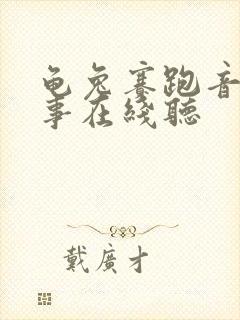 龟兔赛跑音
事在綫聽
戴廣才